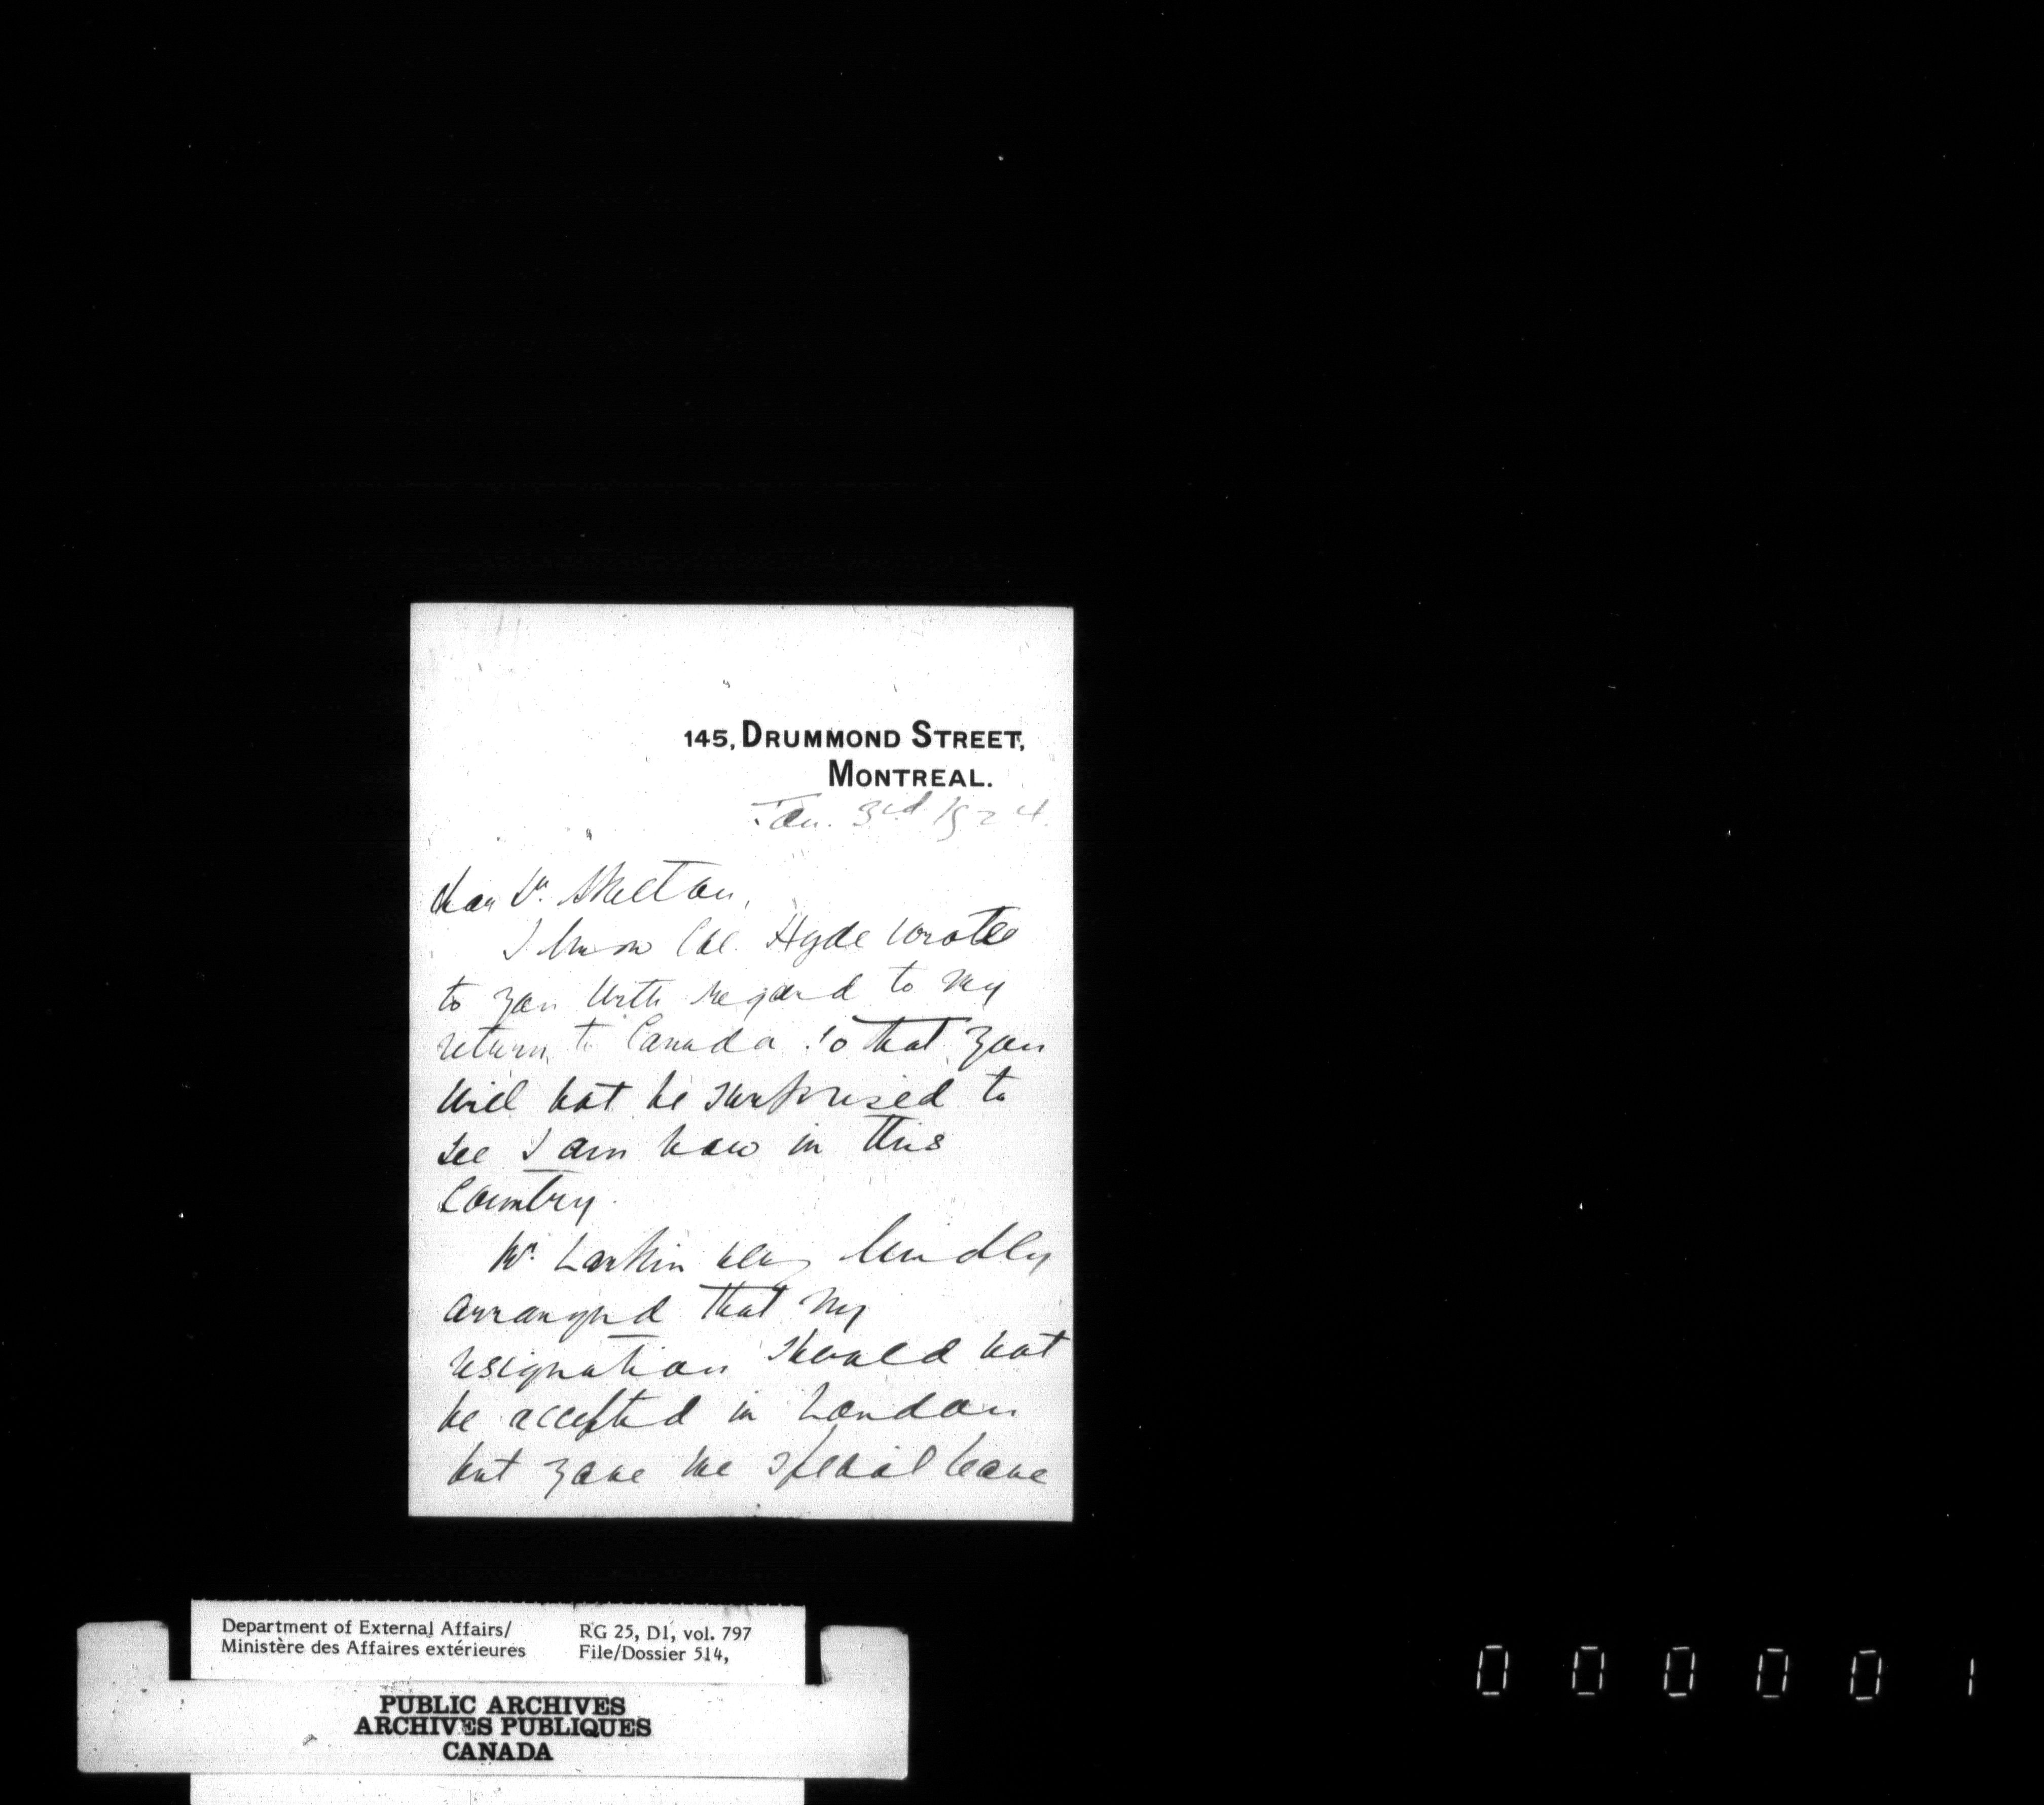 145, DRUMMOND STREET,
MONTREAL.
Jan. 3rd 1924.
Dear Dr. Skelton,
I know Col. Hyde wrote
to you with regard to my
return to Canada so that you
will not be surprised to
see I am now in this
Country.
Mr. Larkin very kindly
arranged that my
resignation should not
be accepted in London
but gave me special leave
Department of External Affairs/
Ministère des Affaires extérieures
RG 25, D1, vol. 797
File/Dossier 514,
PUBLIC ARCHIVES
ARCHIVES PUBLIQUES
CANADA
000001